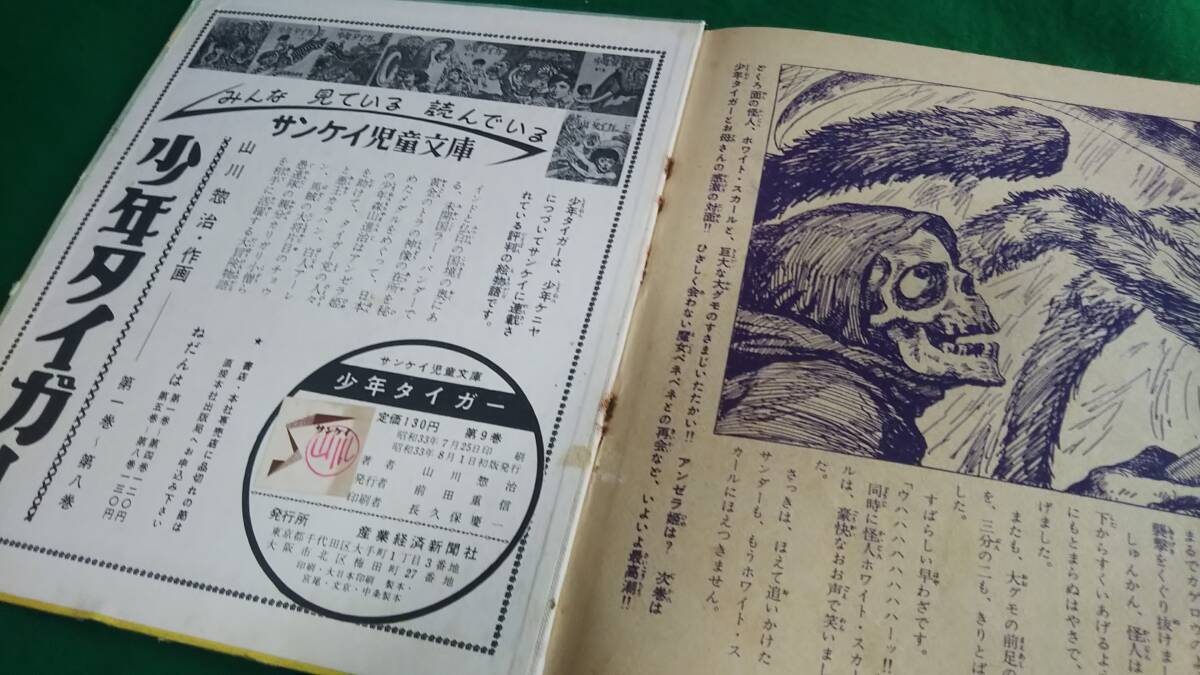 みんな 見ている 読んでいる
サンケイ児童文庫
少年タイガーは、少年ケニヤ
につづいてサンケイに連載さ
れている評判の絵物語です。
インドと仏印の国境の奥にあ
る、未開国ラー・バンダーで
黄金のトラの神像の在所を秘
めたメダルをめぐって、日本
の少年森山進治はアンゼラ姫
を助けて、タイガー党の人々
と悪漢
山川惣治・作画
少年タイガー
第一巻~第八巻
ねだんは 第一巻~第四巻 一二〇円
第五巻~第八巻 一三〇円
★ 書店、本社専売店に品切れの節は
直接本社出版局へお申込み下さい
サンケイ児童文庫
少年タイガー
定価130円 第9巻
昭和33年7月25日印刷
昭和33年8月1日初版発行
サンケイ
山川
著者 山川惣治
発行者 前田重信
印刷者 長久保慶一
発行所 産業経済新聞社
東京都千代田区大手町1丁目3番地
大阪市北区梅田町27番地
印刷・大日本印刷 製本・
宮尾・文京・中条製本
どくろ面の怪人、ホワイト・スカールと、巨大な大グモのすさまじいたたかい!! アンゼラ姫は? 次巻は
少年タイガーとお母さんの感激の対面!! ひさしく会わない魔女ベネベネとの再会など、いよいよ最高潮!!
襲撃をくぐり抜けまし
しゅんかん、怪人は
下からすくいあげるよ
にもとまらぬはやさで、
げました。
またも、大グモの前足の
を、三分の二も、きりとば
した。
すばらしい早わざです。
「ウハハハハハハハーッ!!
同時に怪人ホワイト・スカー
ルは、豪快なおお声で笑いまし
た。
さっきは、ほえて追いかけた
サンダーも、もうホワイト・ス
カールにほえつきません。